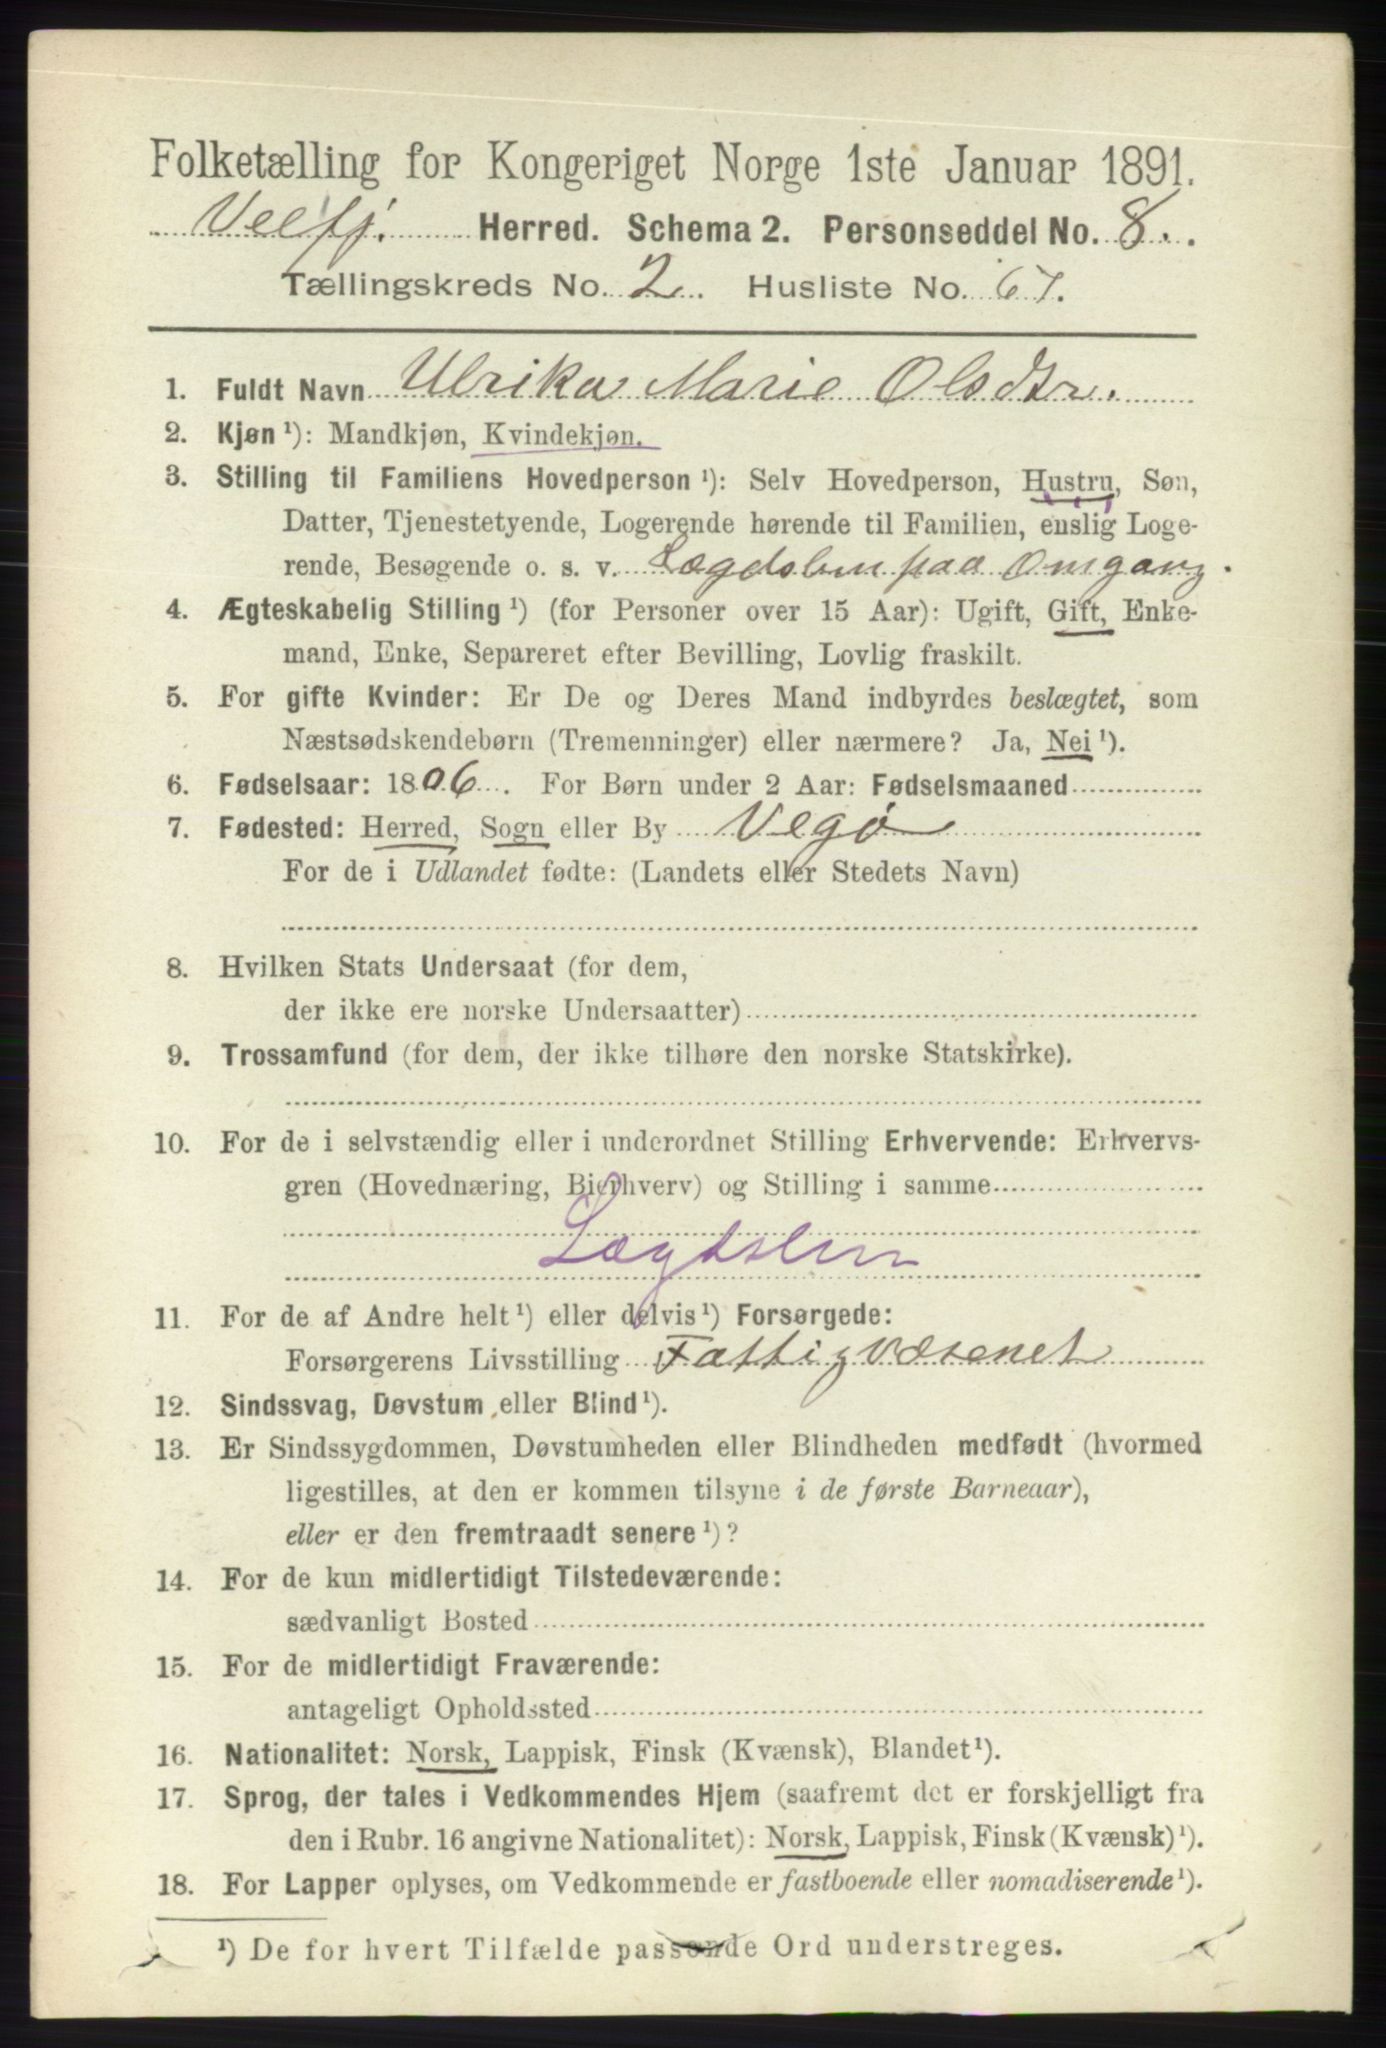 Folketælling for Kongeriget Norge 1ste Januar 1891.
Velfj. Herred. Schema 2. Personseddel No. 8.
Tællingskreds No. 2. Husliste No. 67.
1. Fuldt Navn Ulrika Marie Olsdtr.
2. Kjøn ¹): Mandkjøn, Kvindekjøn.
3. Stilling til Familiens Hovedperson ¹): Selv Hovedperson, Hustru, Søn,
Datter, Tjenestetyende, Logerende hørende til Familien, enslig Loge-
rende, Besøgende o. s. v. Lægdslem paa Omgang.
4. Ægteskabelig Stilling ¹) (for Personer over 15 Aar): Ugift, Gift, Enke-
mand, Enke, Separeret efter Bevilling, Lovlig fraskilt.
5. For gifte Kvinder: Er De og Deres Mand indbyrdes beslægtet, som
Næstsødskendebørn (Tremenninger) eller nærmere? Ja, Nei ¹).
6. Fødselsaar: 1806. For Børn under 2 Aar: Fødselsmaaned
7. Fødested: Herred, Sogn eller By Vegø
For de i Udlandet fødte: (Landets eller Stedets Navn)
8. Hvilken Stats Undersaat (for dem,
der ikke ere norske Undersaatter)
9. Trossamfund (for dem, der ikke tilhøre den norske Statskirke).
10. For de i selvstændig eller i underordnet Stilling Erhvervende: Erhvervs-
gren (Hovednæring, Bierhverv) og Stilling i samme
Lægdslem
11. For de af Andre helt ¹) eller delvis ¹) Forsørgede:
Forsørgerens Livsstilling Fattigvæsenet
12. Sindssvag, Døvstum eller Blind ¹).
13. Er Sindssygdommen, Døvstumheden eller Blindheden medfødt (hvormed
ligestilles, at den er kommen tilsyne i de første Barneaar),
eller er den fremtraadt senere ¹)?
14. For de kun midlertidigt Tilstedeværende:
sædvanligt Bosted
15. For de midlertidigt Fraværende:
antageligt Opholdssted
16. Nationalitet: Norsk, Lappisk, Finsk (Kvænsk), Blandet ¹).
17. Sprog, der tales i Vedkommendes Hjem (saafremt det er forskjelligt fra
den i Rubr. 16 angivne Nationalitet): Norsk, Lappisk, Finsk (Kvænsk) ¹).
18. For Lapper oplyses, om Vedkommende er fastboende eller nomadiserende ¹).
¹) De for hvert Tilfælde passende Ord understreges.